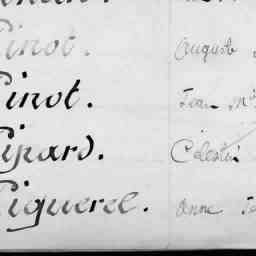 inot. August
inot. Jean M
ipard. Célestin
iquerel. Anne